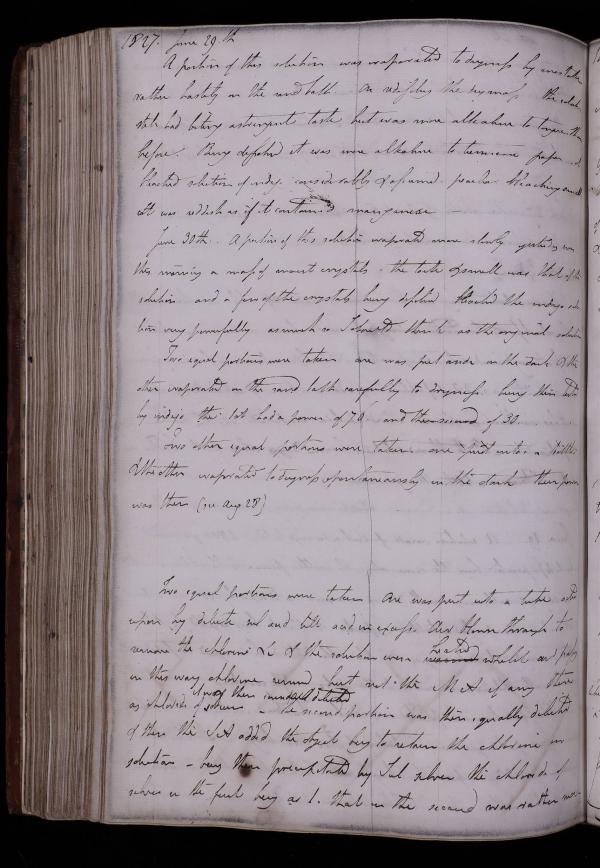 1827. June 29.th
A portion of this solution was evaporated to dryness by mistake
rather hastily on the sand bath. On redissolving the dry mass the
had astringent taste but was more alkaline to than
before. Being it was more alkaline to turmeric paper
bleached solution of indigo considerably &
it was reddish as if it contained manganese
June 30th. A portion of this solution evaporated more slowly yesterday was
this morning a mass of crystals. the taste & smell was that of the
solution and a few of the crystals being dissolved bleached the indigo
very powerfully as much so I should think as the original solution
Two equal portions were taken one was put aside in the dark & the
other evaporated on the sand bath carefully to dryness. being then
by indigo the 1st had a power of 70 and the second of 30.
Two other equal portions were taken one put into a bottle
& the other evaporated to dryness spontaneously in the dark their power
was then (see Aug 28)
Two equal portions were taken One was put into a tube
upon by dilute acid in excess Air blown through to
remove the chlorine &c & the solution heated whilst air
in this way chlorine removed but not the M A if any there
as chloride of
the second portion was then equally diluted
& then the S A added the object being to retain the chlorine in
solution - being then precipitated by silver the chloride of
silver in the first being as 1. that in the second was rather